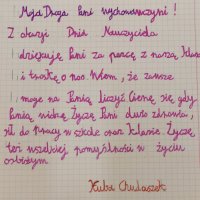 Moja Droga Pani wychowawczyni!
Z okazji Dnia Nauczyciela
dziękuję Pani za pracę z naszą klasą
i troskę o nas. Wiem, że zawsze
mogę na Panią liczyć. Cieszę się gdy
Panią widzę. Życzę Pani dużo zdrowia,
sił do pracy w szkole oraz klasie. Życzę
też wszelkiej pomyślności w życiu
osobistym.
Kuba